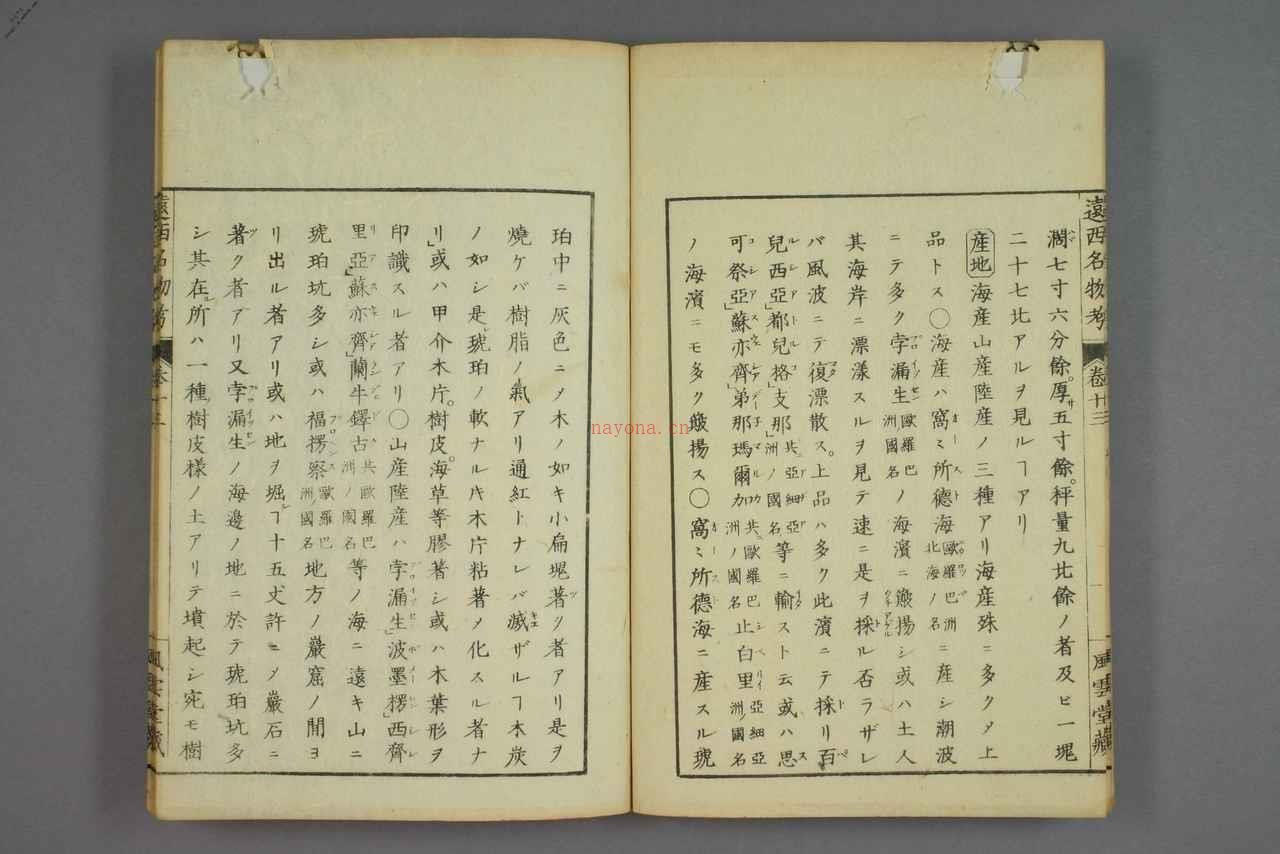 遠西名物考 卷十三 風雲堂藏
濶七寸六分餘厚五寸餘秤量九比餘ノ者及ヒ一塊
二十七比アルヲ見ルヿアリ
産地海産山産陸産ノ三種アリ海産殊ニ多クメ上
品トス〇海産ハ窩ミ所德海歐羅巴洲北海ノ名ニ産シ潮波
ニテ多ク孛漏生歐羅巴洲國名ノ海濱ニ簸揚シ或ハ土人
其海岸ニ漂漾スルヲ見テ速ニ是ヲ採ル否ラザレ
バ風波ニテ復漂散ス上品ハ多ク此濱ニテ採リ百
兒西亞」都兒格」支那共ニ亞細亞洲ノ國名等ニ輸スト云或ハ思
可祭亞」蘇亦齊」弟那瑪爾加共ニ歐羅巴洲ノ國名止白里亞細亞洲ノ國名
ノ海濱ニモ多ク簸揚ス〇窩ミ所德海ニ産スル琥
珀中ニ灰色ニメ木ノ如キ小扁塊著ク者アリ是ヲ
燒ケバ樹脂ノ氣アリ通紅トナレバ滅ザルヿ木炭
ノ如シ是琥珀ノ軟ナルキ木片粘著メ化スル者ナ
リ」或ハ甲介木片樹皮海草等膠著シ或ハ木葉形ヲ
印識スル者アリ〇山産陸産ハ孛漏生」波墨楞」西齊
里亞」蘇亦齊」蘭牛鐸共ニ歐羅巴洲ノ國名等ノ海ニ遠キ山ニ
琥珀坑多シ或ハ福楞察歐羅巴洲ノ國名地方ノ巖窟ノ間ヨ
リ出ル者アリ或ハ地ヲ堀ルヿ十五丈許ニメ巖石ニ
著ク者アリ又孛漏生ノ海邊ノ地ニ於テ琥珀坑多
シ其在所ハ一種樹皮樣ノ土アリテ墳起シ宛モ樹
遠西名物考 卷十三 風雲堂藏
nayona.cn